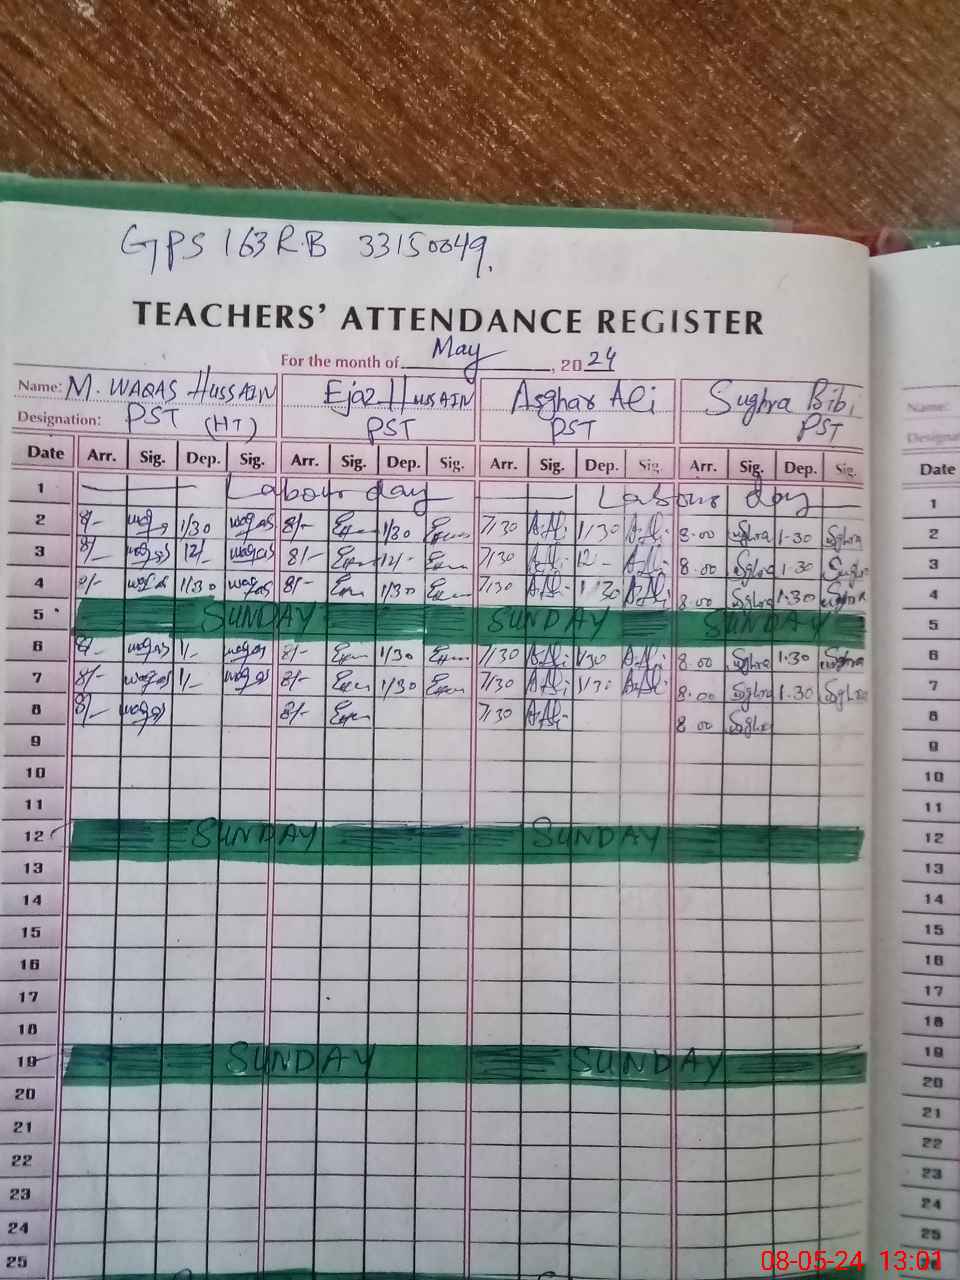 GPS 163 R.B 33150049.
TEACHERS' ATTENDANCE REGISTER
For the month of May, 2024
Name: M. WAQAS HUSSAIN Ejaz HUSSAIN Asghar Ali Sughra Bibi Name:
Designation: PST (HT) PST PST PST
Date Arr. Sig. Dep. Sig. Arr. Sig. Dep. Sig. Arr. Sig. Dep. Sig. Arr. Sig. Dep. Sig. Date
1 Labour day Labour day 1
2 8/- waqas 1/30 waqas 8/- 1/30 7/30 A.Ali 1/30 A.Ali 8.00 Sghra 1-30 Sghra 2
3 8/- waqas 12/- waqas 8/- 12/- 7/30 A.Ali 12- A.Ali 8.00 Sghra 1-30 Sghra 3
4 8/- waqas 1/30 waqas 8/- 1/30 7/30 A.Ali 1/30 A.Ali 8.00 Sghra 1.30 Sghra 4
5 SUNDAY SUNDAY SUNDAY 5
6 8/- waqas 1/- waqas 8/- 1/30 7/30 A.Ali 1/30 A.Ali 8.00 Sghra 1.30 Sghra 6
7 8/- waqas 1/- waqas 8/- 1/30 7/30 A.Ali 1/30 A.Ali 8.00 Sghra 1-30 Sghra 7
8 8/- waqas 8/- 7/30 A.Ali 8.00 Sghra 8
9 9
10 10
11 11
12 SUNDAY SUNDAY 12
13 13
14 14
15 15
16 16
17 17
18 18
19 SUNDAY SUNDAY 19
20 20
21 21
22 22
23 23
24 24
25 25
08-05-24 13:01